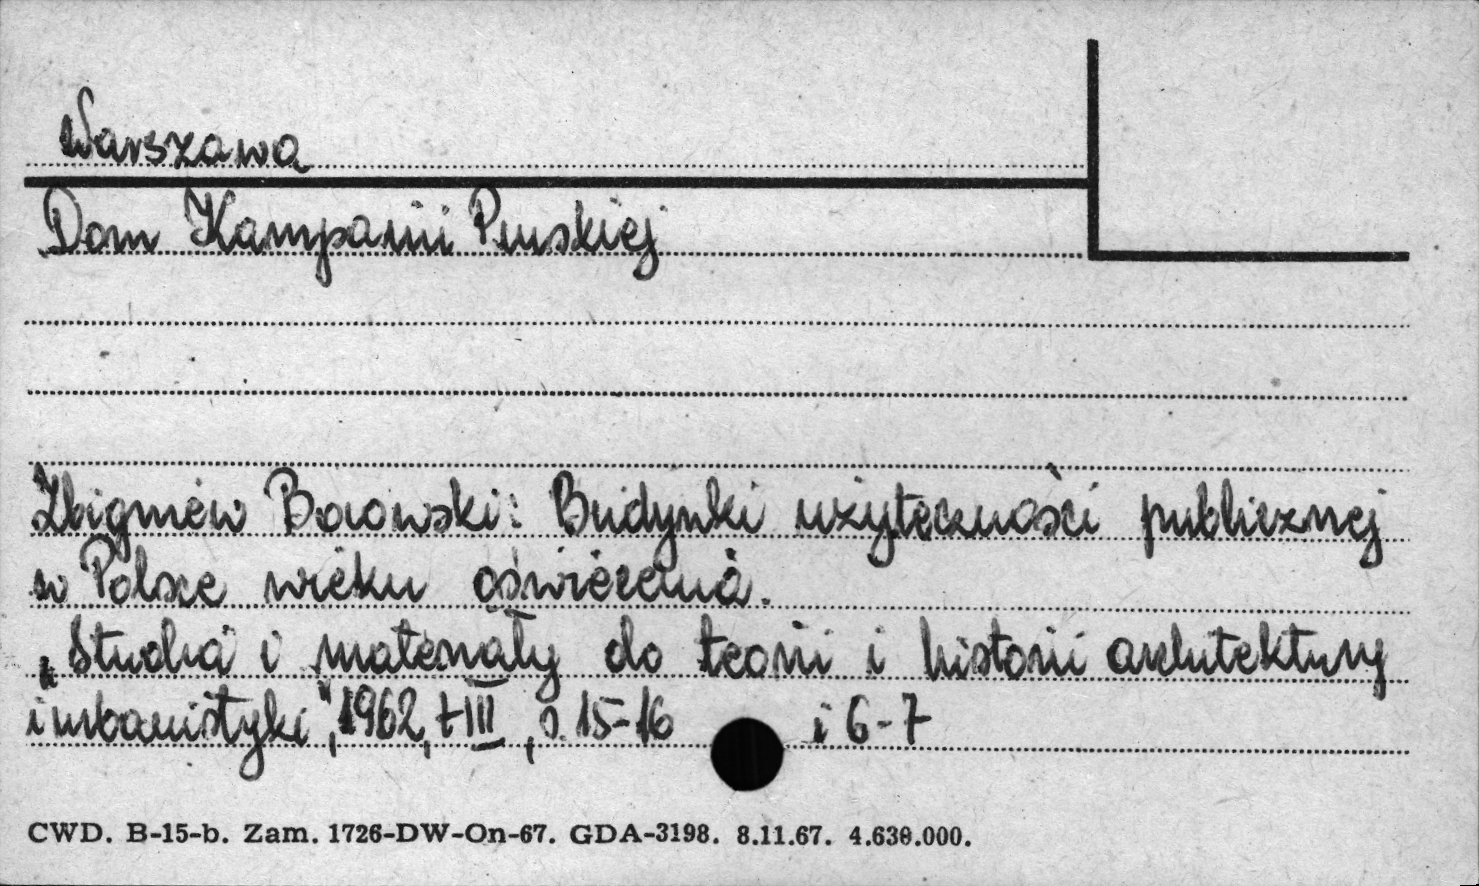 Warszawa
Dom Kampanii Pruskiej
Zbigniew Borowski: Budynki użyteczności publicznej
w Polsce wieku oświecenia.
"Studia i materiały do teorii i historii architektury
i urbanistyki", 1962, t III, s. 15-16 i 6-7
CWD. B-15-b. Zam. 1726-DW-On-67. GDA-3198. 8.11.67. 4.630.000.